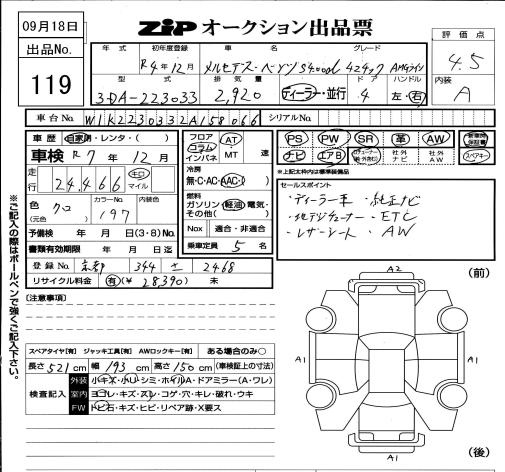 09月18日
ZIP オークション出品票
出品No.
119
評価点
4.5
内装
A
年式 初年度登録 車名 グレード
R4年12月 メルセデス・ベンツS400d 4マチック AMGライン
型式 排気量 ドア ハンドル
3DA-223033 2,920 ディーラー・並行 4 左・右
車台No. W1K2230332A158066 シリアルNo.
車歴 自家用・レンタ・( )
車検 R7年12月
走行 24,466 キロ マイル
色 クロ カラーNo. 197 内装色
(元色)
予備検 年 月 日(3・8)No.
書類有効期限 年 月 日迄
登録No. 京都 344 さ 2468
リサイクル料金 有(¥ 28390) 未
フロア コラム インパネ AT・MT 速
冷房 無・C・AC・AAC・( )
燃料 ガソリン・軽油・電気・その他( )
Nox 適合・非適合
乗車定員 5 名
PS PW SR 革 AW
ナビ エアB 社外ナビ 社外AW
新車時保証書
スペアキー
*上記太枠内は標準装備品
セールスポイント
・ディーラー車 ・純正ナビ
・地デジチューナー・ETC
・レザーシート ・AW
[注意事項]
スペアタイヤ[有] ジャッキ工具[有] AWロックキー[有] ある場合のみ○
長さ 521 cm 幅 193 cm 高さ 150 cm (車検証上の寸法)
検査記入
外装 小キズ・小U・シミ・ホイルA・ドアミラー(A・ワレ)
室内 ヨゴレ・キズ・スレ・コゲ・穴・キレ・破れ・ウキ
FW トビ石・キズ・ヒビ・リペア跡・X要ス
※ご記入の際はボールペンで強くご記入下さい。
(前)
A2
A1
A1
A1
(後)